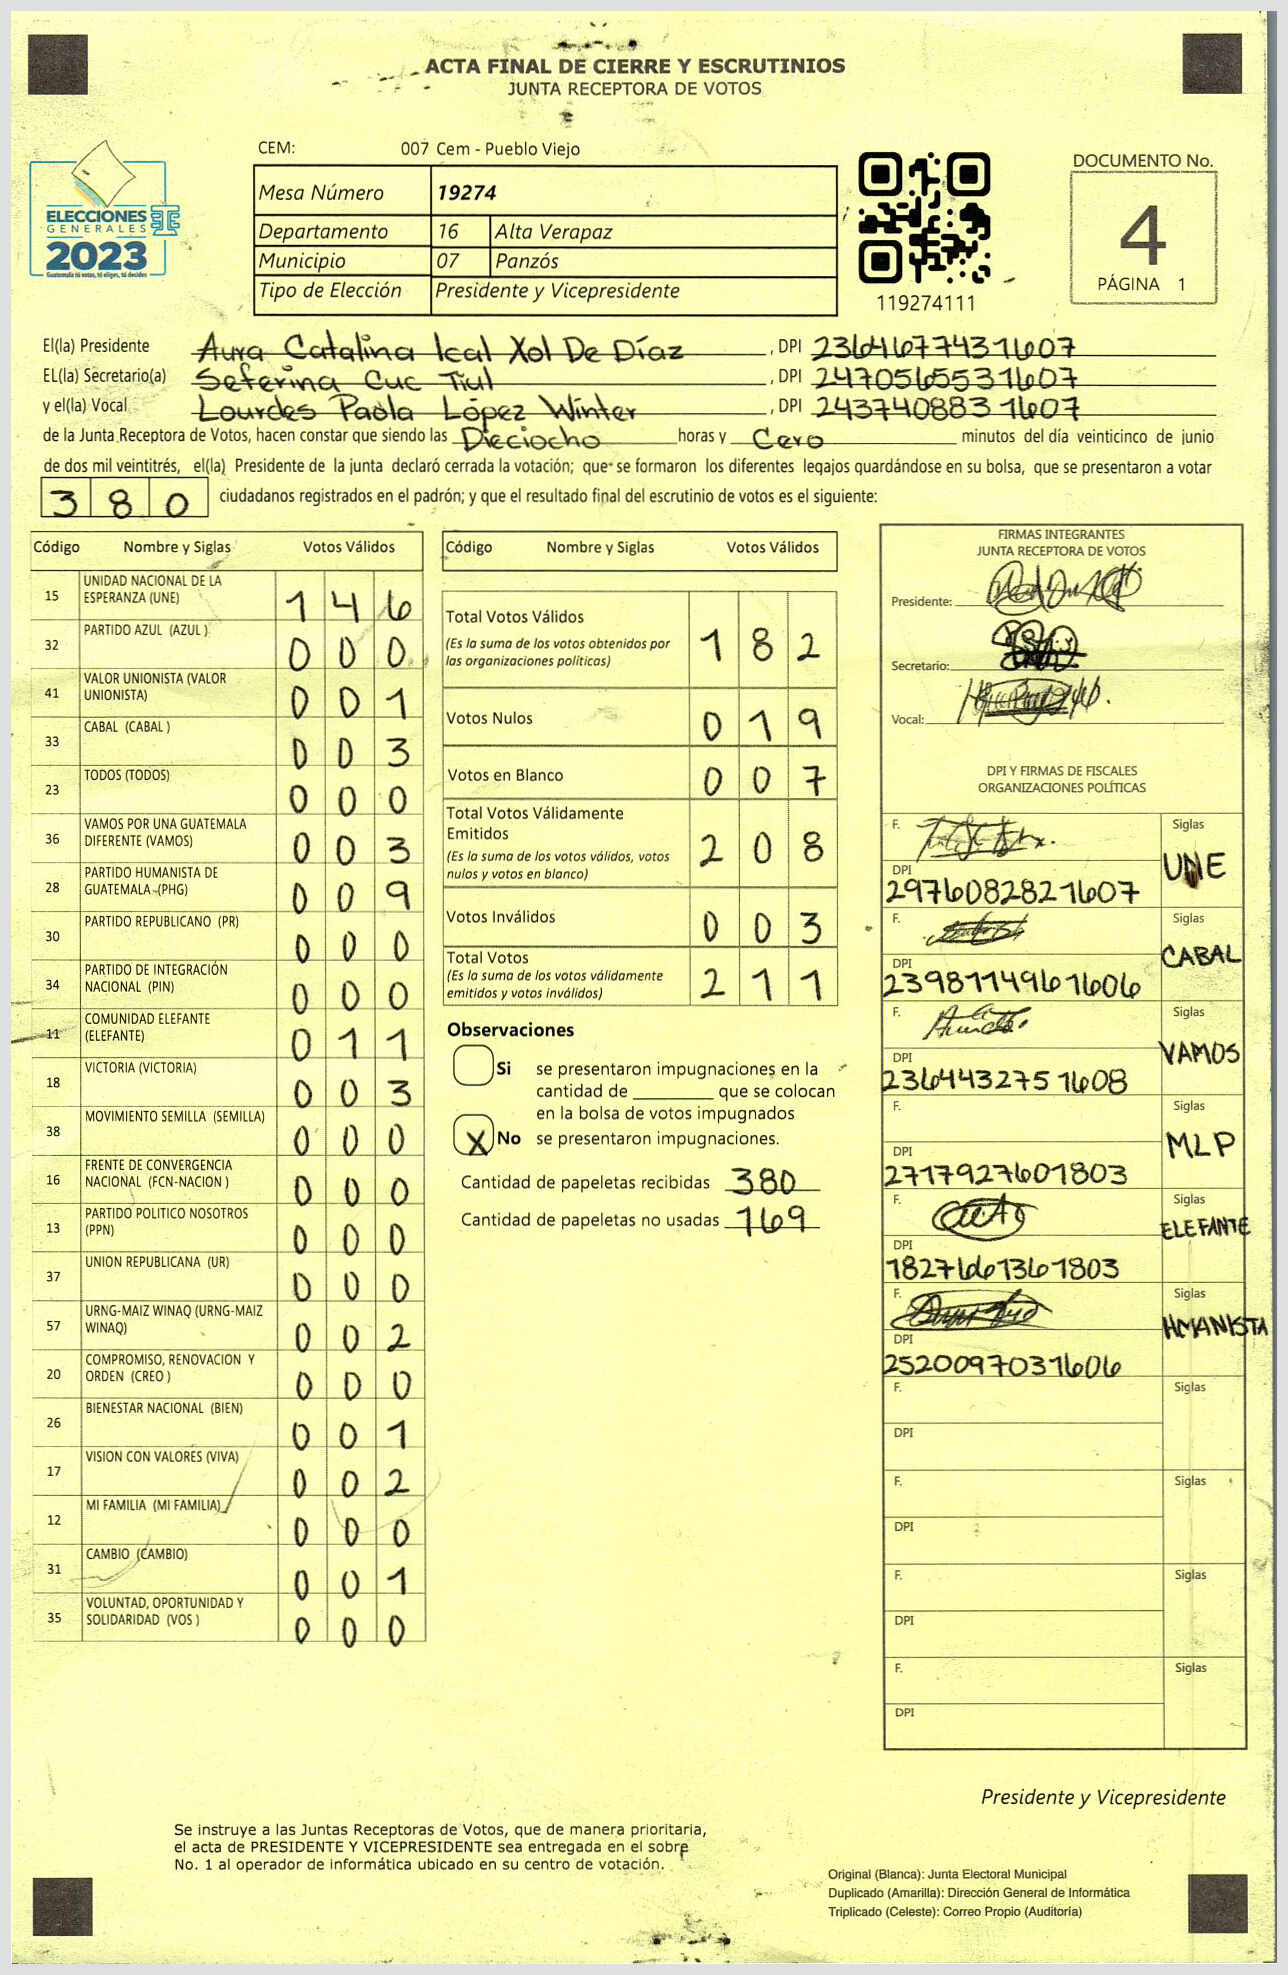 ACTA FINAL DE CIERRE Y ESCRUTINIOS
JUNTA RECEPTORA DE VOTOS
CEM: 007 Cem - Pueblo Viejo
ELECCIONES
GENERALES
2023
Guatemala tú votas, tú eliges, tú decides
Mesa Número 19274
Departamento 16 Alta Verapaz
Municipio 07 Panzós
Tipo de Elección Presidente y Vicepresidente
119274111
DOCUMENTO No.
4
PÁGINA 1
El(la) Presidente Aura Catalina Ical Xol De Díaz , DPI 2364677431607
EL(la) Secretario(a) Seferina Cuc Tiul , DPI 2470565531607
y el(la) Vocal Lourdes Paola López Winter , DPI 2437408831607
de la Junta Receptora de Votos, hacen constar que siendo las Dieciocho horas y Cero minutos del día veinticinco de junio
de dos mil veintitrés, el(la) Presidente de la junta declaró cerrada la votación; que se formaron los diferentes legajos guardándose en su bolsa, que se presentaron a votar
380 ciudadanos registrados en el padrón; y que el resultado final del escrutinio de votos es el siguiente:
Código Nombre y Siglas Votos Válidos
15 UNIDAD NACIONAL DE LA ESPERANZA (UNE) 146
32 PARTIDO AZUL (AZUL ) 000
41 VALOR UNIONISTA (VALOR UNIONISTA) 001
33 CABAL (CABAL ) 003
23 TODOS (TODOS) 000
36 VAMOS POR UNA GUATEMALA DIFERENTE (VAMOS) 003
28 PARTIDO HUMANISTA DE GUATEMALA (PHG) 009
30 PARTIDO REPUBLICANO (PR) 000
34 PARTIDO DE INTEGRACIÓN NACIONAL (PIN) 000
11 COMUNIDAD ELEFANTE (ELEFANTE) 011
18 VICTORIA (VICTORIA) 003
38 MOVIMIENTO SEMILLA (SEMILLA) 000
16 FRENTE DE CONVERGENCIA NACIONAL (FCN-NACION ) 000
13 PARTIDO POLITICO NOSOTROS (PPN) 000
37 UNION REPUBLICANA (UR) 000
57 URNG-MAIZ WINAQ (URNG-MAIZ WINAQ) 002
20 COMPROMISO, RENOVACION Y ORDEN (CREO ) 000
26 BIENESTAR NACIONAL (BIEN) 001
17 VISION CON VALORES (VIVA) 002
12 MI FAMILIA (MI FAMILIA) 000
31 CAMBIO (CAMBIO) 001
35 VOLUNTAD, OPORTUNIDAD Y SOLIDARIDAD (VOS ) 000
Código Nombre y Siglas Votos Válidos
Total Votos Válidos 182
(Es la suma de los votos obtenidos por
las organizaciones políticas)
Votos Nulos 019
Votos en Blanco 007
Total Votos Válidamente
Emitidos 208
(Es la suma de los votos válidos, votos
nulos y votos en blanco)
Votos Inválidos 003
Total Votos 211
(Es la suma de los votos válidamente
emitidos y votos inválidos)
Observaciones
Si se presentaron impugnaciones en la
cantidad de ________ que se colocan
en la bolsa de votos impugnados
X No se presentaron impugnaciones.
Cantidad de papeletas recibidas 380
Cantidad de papeletas no usadas 169
FIRMAS INTEGRANTES
JUNTA RECEPTORA DE VOTOS
Presidente:
Secretario:
Vocal:
DPI Y FIRMAS DE FISCALES
ORGANIZACIONES POLÍTICAS
F. Siglas
UNE
DPI
2976082821607
F. Siglas
CABAL
DPI
2398114961606
F. Siglas
VAMOS
DPI
2364432751608
F. Siglas
MLP
DPI
2717927601803
F. Siglas
ELEFANTE
DPI
1827661361803
F. Siglas
HMANISTA
DPI
2520097031606
F. Siglas
DPI
F. Siglas
DPI
F. Siglas
DPI
F. Siglas
DPI
Presidente y Vicepresidente
Se instruye a las Juntas Receptoras de Votos, que de manera prioritaria,
el acta de PRESIDENTE Y VICEPRESIDENTE sea entregada en el sobre
No. 1 al operador de informática ubicado en su centro de votación.
Original (Blanca): Junta Electoral Municipal
Duplicado (Amarilla): Dirección General de Informática
Triplicado (Celeste): Correo Propio (Auditoría)